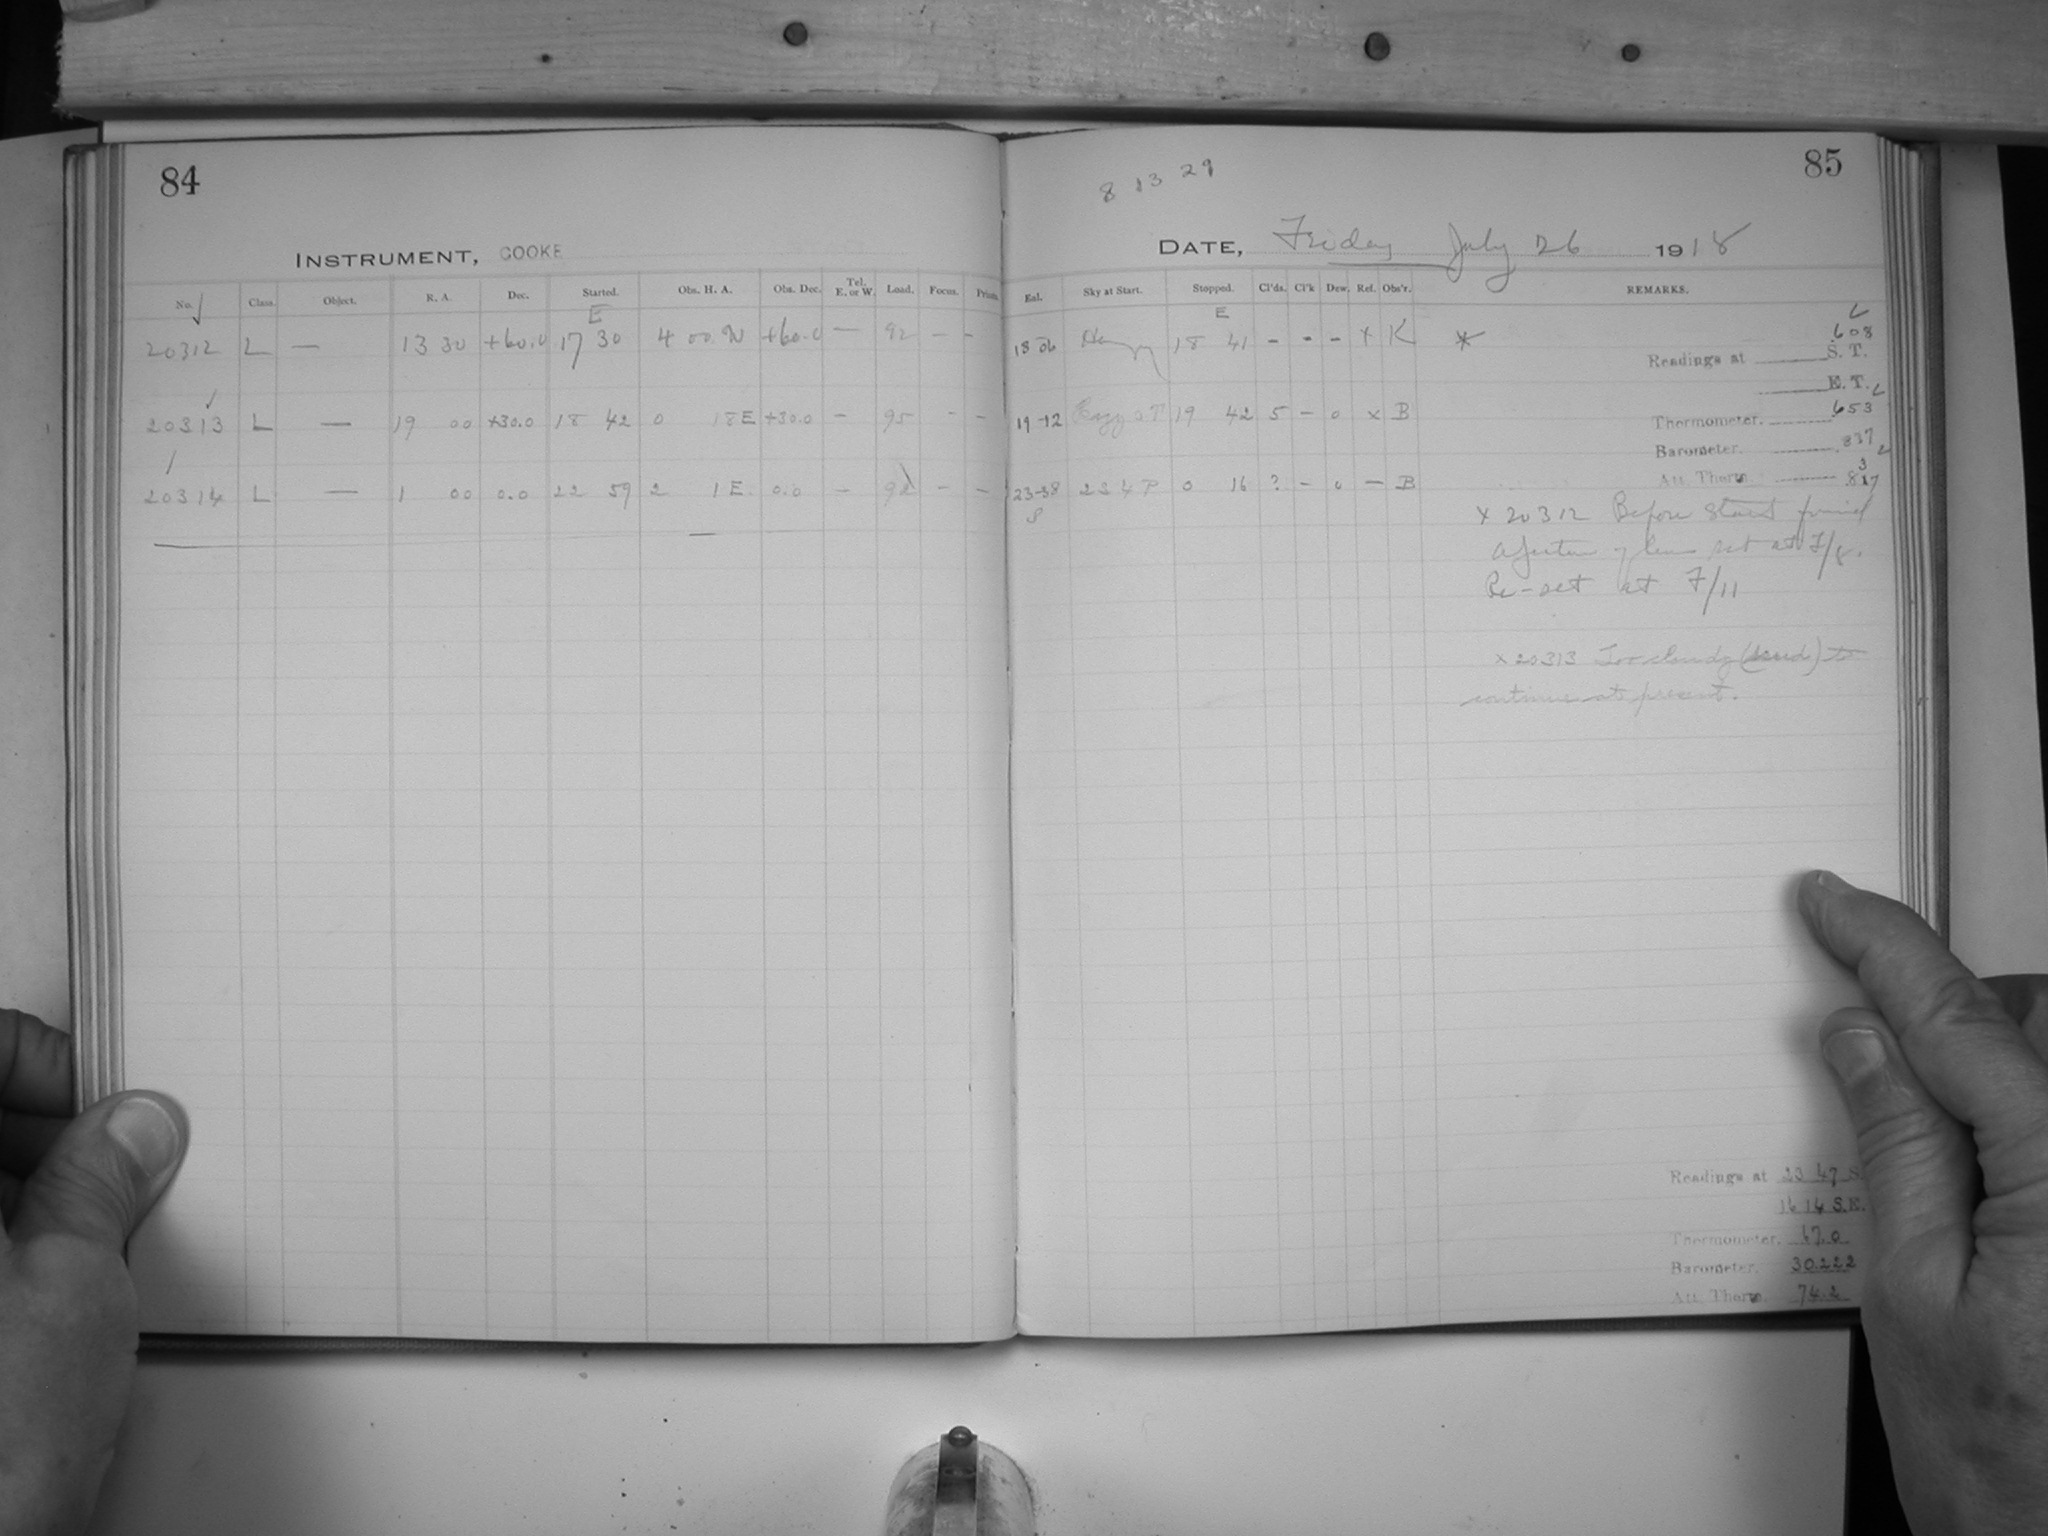 84
INSTRUMENT, COOKE
No. Class. Object. R. A. Dec. Started. Obs. H. A. Obs. Dec. Tel. E. or W. Load. Focus. Prisms
E
20312 L — 13 30 +60.0 17 30 4 00 W +60.0 — 92 - -
20313 L — 19 00 +30.0 18 42 0 18 E +30.0 - 95 - -
20314 L — 1 00 0.0 22 59 2 1 E. 0.0 - 92 - -
85
8 13 29
DATE, Friday July 26 1918
Eal. Sky at Start. Stopped. Cl'ds. Cl'k Dew. Ref. Obs'r. REMARKS.
E
18 06 Hazy 18 41 - - - x K *
19-12 Hazy 19 42 5 - 0 x B
23-38 2 S 4 P 0 16 ? - 0 — B
S
.608
Readings at S. T.
E. T.
Thermometer. .653
Barometer. .837
Att. Therm
x 20312 Before start found
aperture of lens set at F/8.
Re-set at F/11
x 20313 Too cloudy to
continue at present.
Readings at 23 47 S.
16 14 S.E.
Thermometer. 67.0
Barometer. 30.222
Att. Therm. 74.2